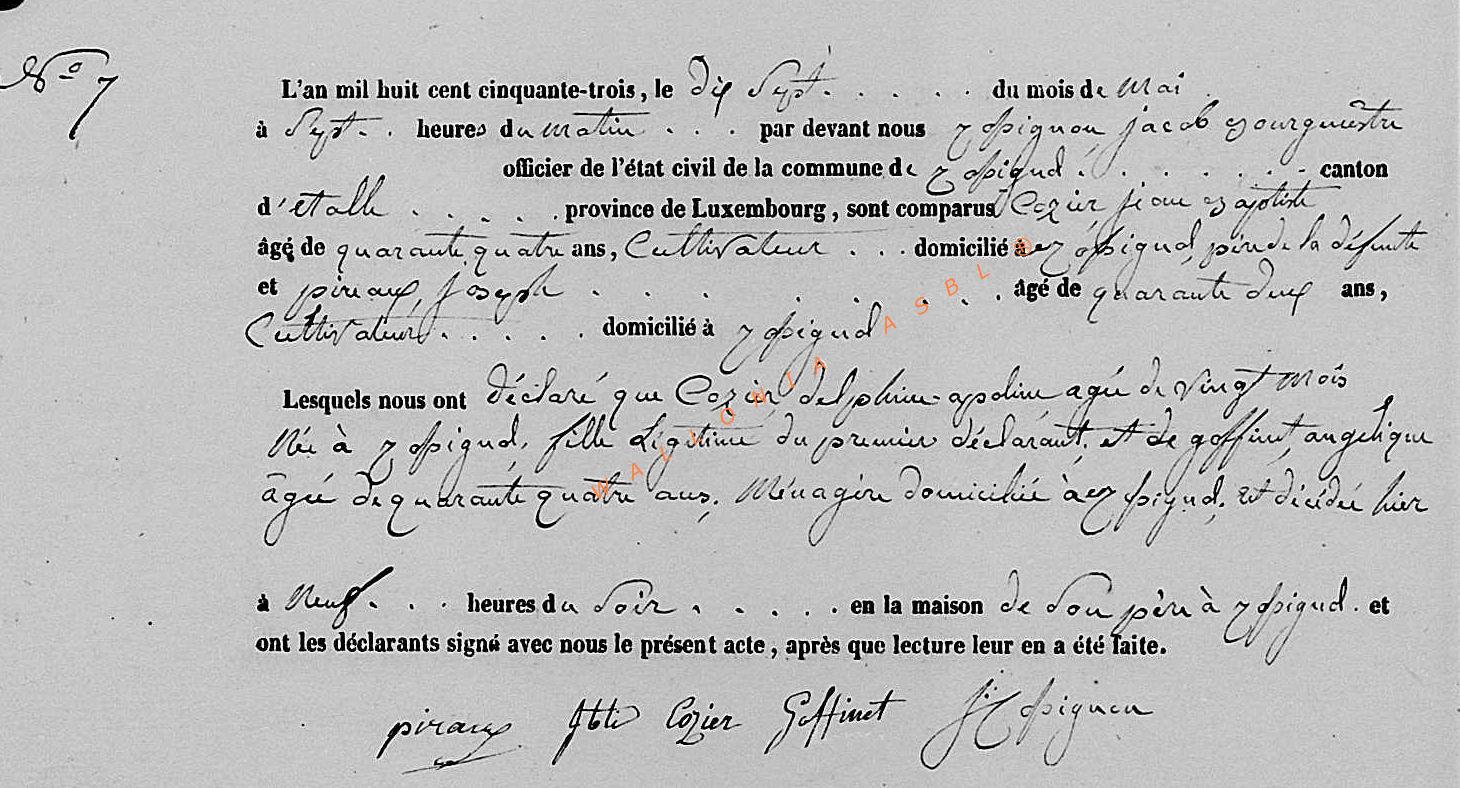 No 7
L'an mil huit cent cinquante-trois, le dix Sept . . . . . du mois de mai
à Sept . . heures du matin . . . par devant nous rossignon jacob bourguestre
officier de l'état civil de la commune de rossignol . . . . . . canton
d'etalle . . . . . province de Luxembourg, sont comparus Cozier jean baptiste
âgé de quarante quatre ans, Cultivateur . . . domicilié à rossignol, père de la défunte
et piraux, joseph . . . . . . . . âgé de quarante deux ans,
Cultivateur . . . . . domicilié à rossignol
Lesquels nous ont déclaré que Cozier delphine-apoline agée de vingt mois
Née à rossignol, fille Légitime du premier déclarant, et de goffinet, angelique
âgée de quarante quatre ans, Ménagère domiciliée à rossignol, est décédée hier
à Neuf . . . heures du Soir . . . . . en la maison de Son père à rossignol. et
ont les déclarants signé avec nous le présent acte, après que lecture leur en a été faite.
piraux Jbte Cozier Goffinet J: rossignon
WALLONIA ASBL ©